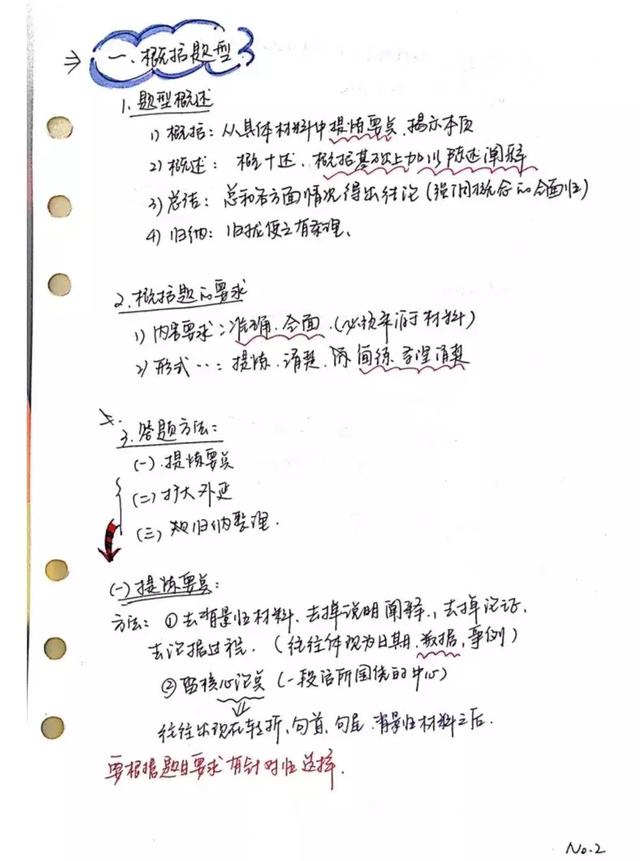 ⇒ 一、概括题型
1. 题型概述
1) 概括：从具体材料中提炼要点、揭示本质
2) 概述：概+述、概括基础上加以陈述阐释
3) 总结：总和各方面情况得出结论（强调概念的全面性）
4) 归纳：归拢使之有条理、
2. 概括题的要求
1) 内容要求：准确、全面、（必须来源于材料）
2) 形式…：提炼、清楚、简练、条理清楚
3. 答题方法：
(一). 提炼要点
(二) 扩大外延
(三) 归纳整理.
(一) 提炼要点：
方法：①去背景性材料、去掉说明阐释、去掉论证、
去论据过程、（往往体现为日期、数据、事例）
②留核心论点（一段话所围绕的中心）
往往出现在转折、句首、句尾、背景性材料之后、
要根据题目要求有针对性选择.
No.2